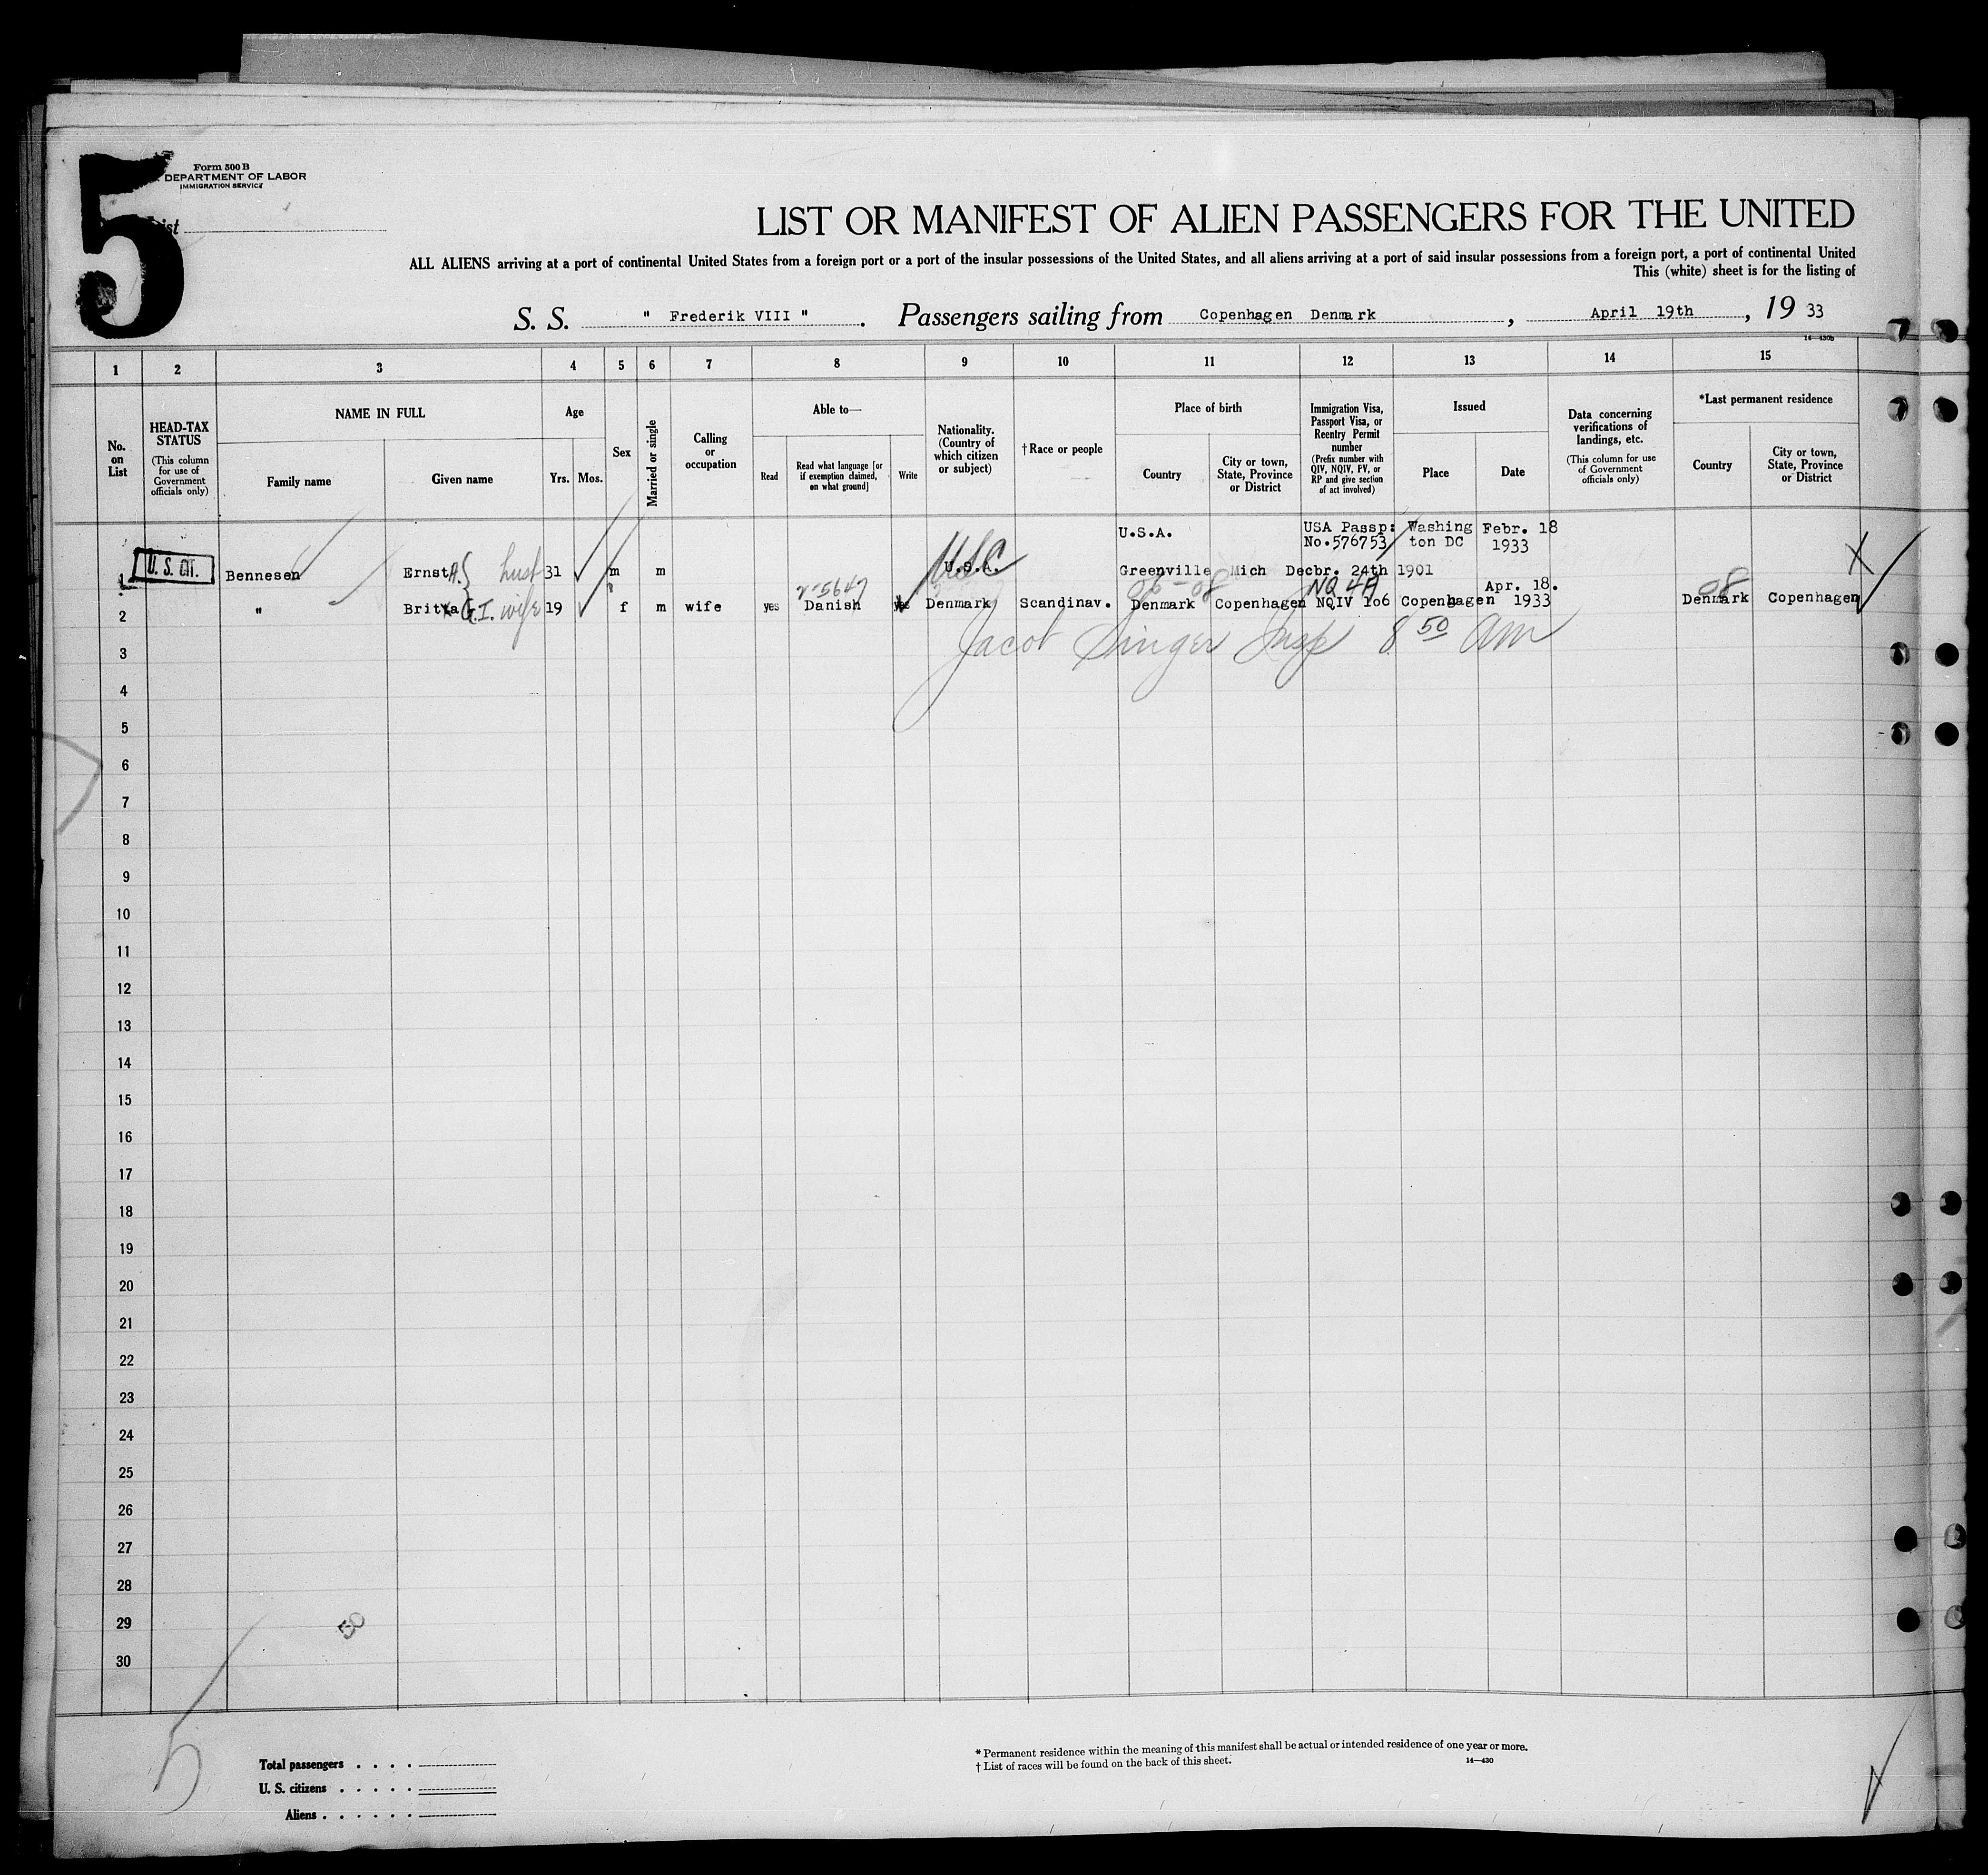 5
Form 500 B
DEPARTMENT OF LABOR
IMMIGRATION SERVICE
List
LIST OR MANIFEST OF ALIEN PASSENGERS FOR THE UNITED
ALL ALIENS arriving at a port of continental United States from a foreign port or a port of the insular possessions of the United States, and all aliens arriving at a port of said insular possessions from a foreign port, a port of continental United
This (white) sheet is for the listing of
S. S. " Frederik VIII " . Passengers sailing from Copenhagen Denmark , April 19th , 19 33
14—430b
1 2 3 4 5 6 7 8 9 10 11 12 13 14 15
No. on List
HEAD-TAX STATUS (This column for use of Government officials only)
NAME IN FULL
Family name
Given name
Age
Yrs. Mos.
Sex
Married or single
Calling or occupation
Able to—
Read
Read what language [or if exemption claimed, on what ground]
Write
Nationality. (Country of which citizen or subject)
† Race or people
Place of birth
Country
City or town, State, Province or District
Immigration Visa, Passport Visa, or Reentry Permit number (Prefix number with QIV, NQIV, PV, or RP and give section of act involved)
Issued
Place
Date
Data concerning verifications of landings, etc. (This column for use of Government officials only)
*Last permanent residence
Country
City or town, State, Province or District
U.S.A. USA Passp: Washing Febr. 18
No.576753 ton DC 1933
1 U. S. CIT. Bennesen Ernst A. husb 31 m m USC U.S.A. Greenville Mich Decbr. 24th 1901 X
2-5647 06-08 NQ 4A Apr. 18. 08
2 " Britta G.I. wife 19 f m wife yes Danish yes Denmark Scandinav. Denmark Copenhagen NQIV 106 Copenhagen 1933 Denmark Copenhagen
Jacob Singer Insp 8 50 AM
3
4
5
6
7
8
9
10
11
12
13
14
15
16
17
18
19
20
21
22
23
24
25
26
27
28
29
30
50
5
Total passengers . . . .
U. S. citizens . . . . .
Aliens . . . . . .
* Permanent residence within the meaning of this manifest shall be actual or intended residence of one year or more.
† List of races will be found on the back of this sheet.
14—430